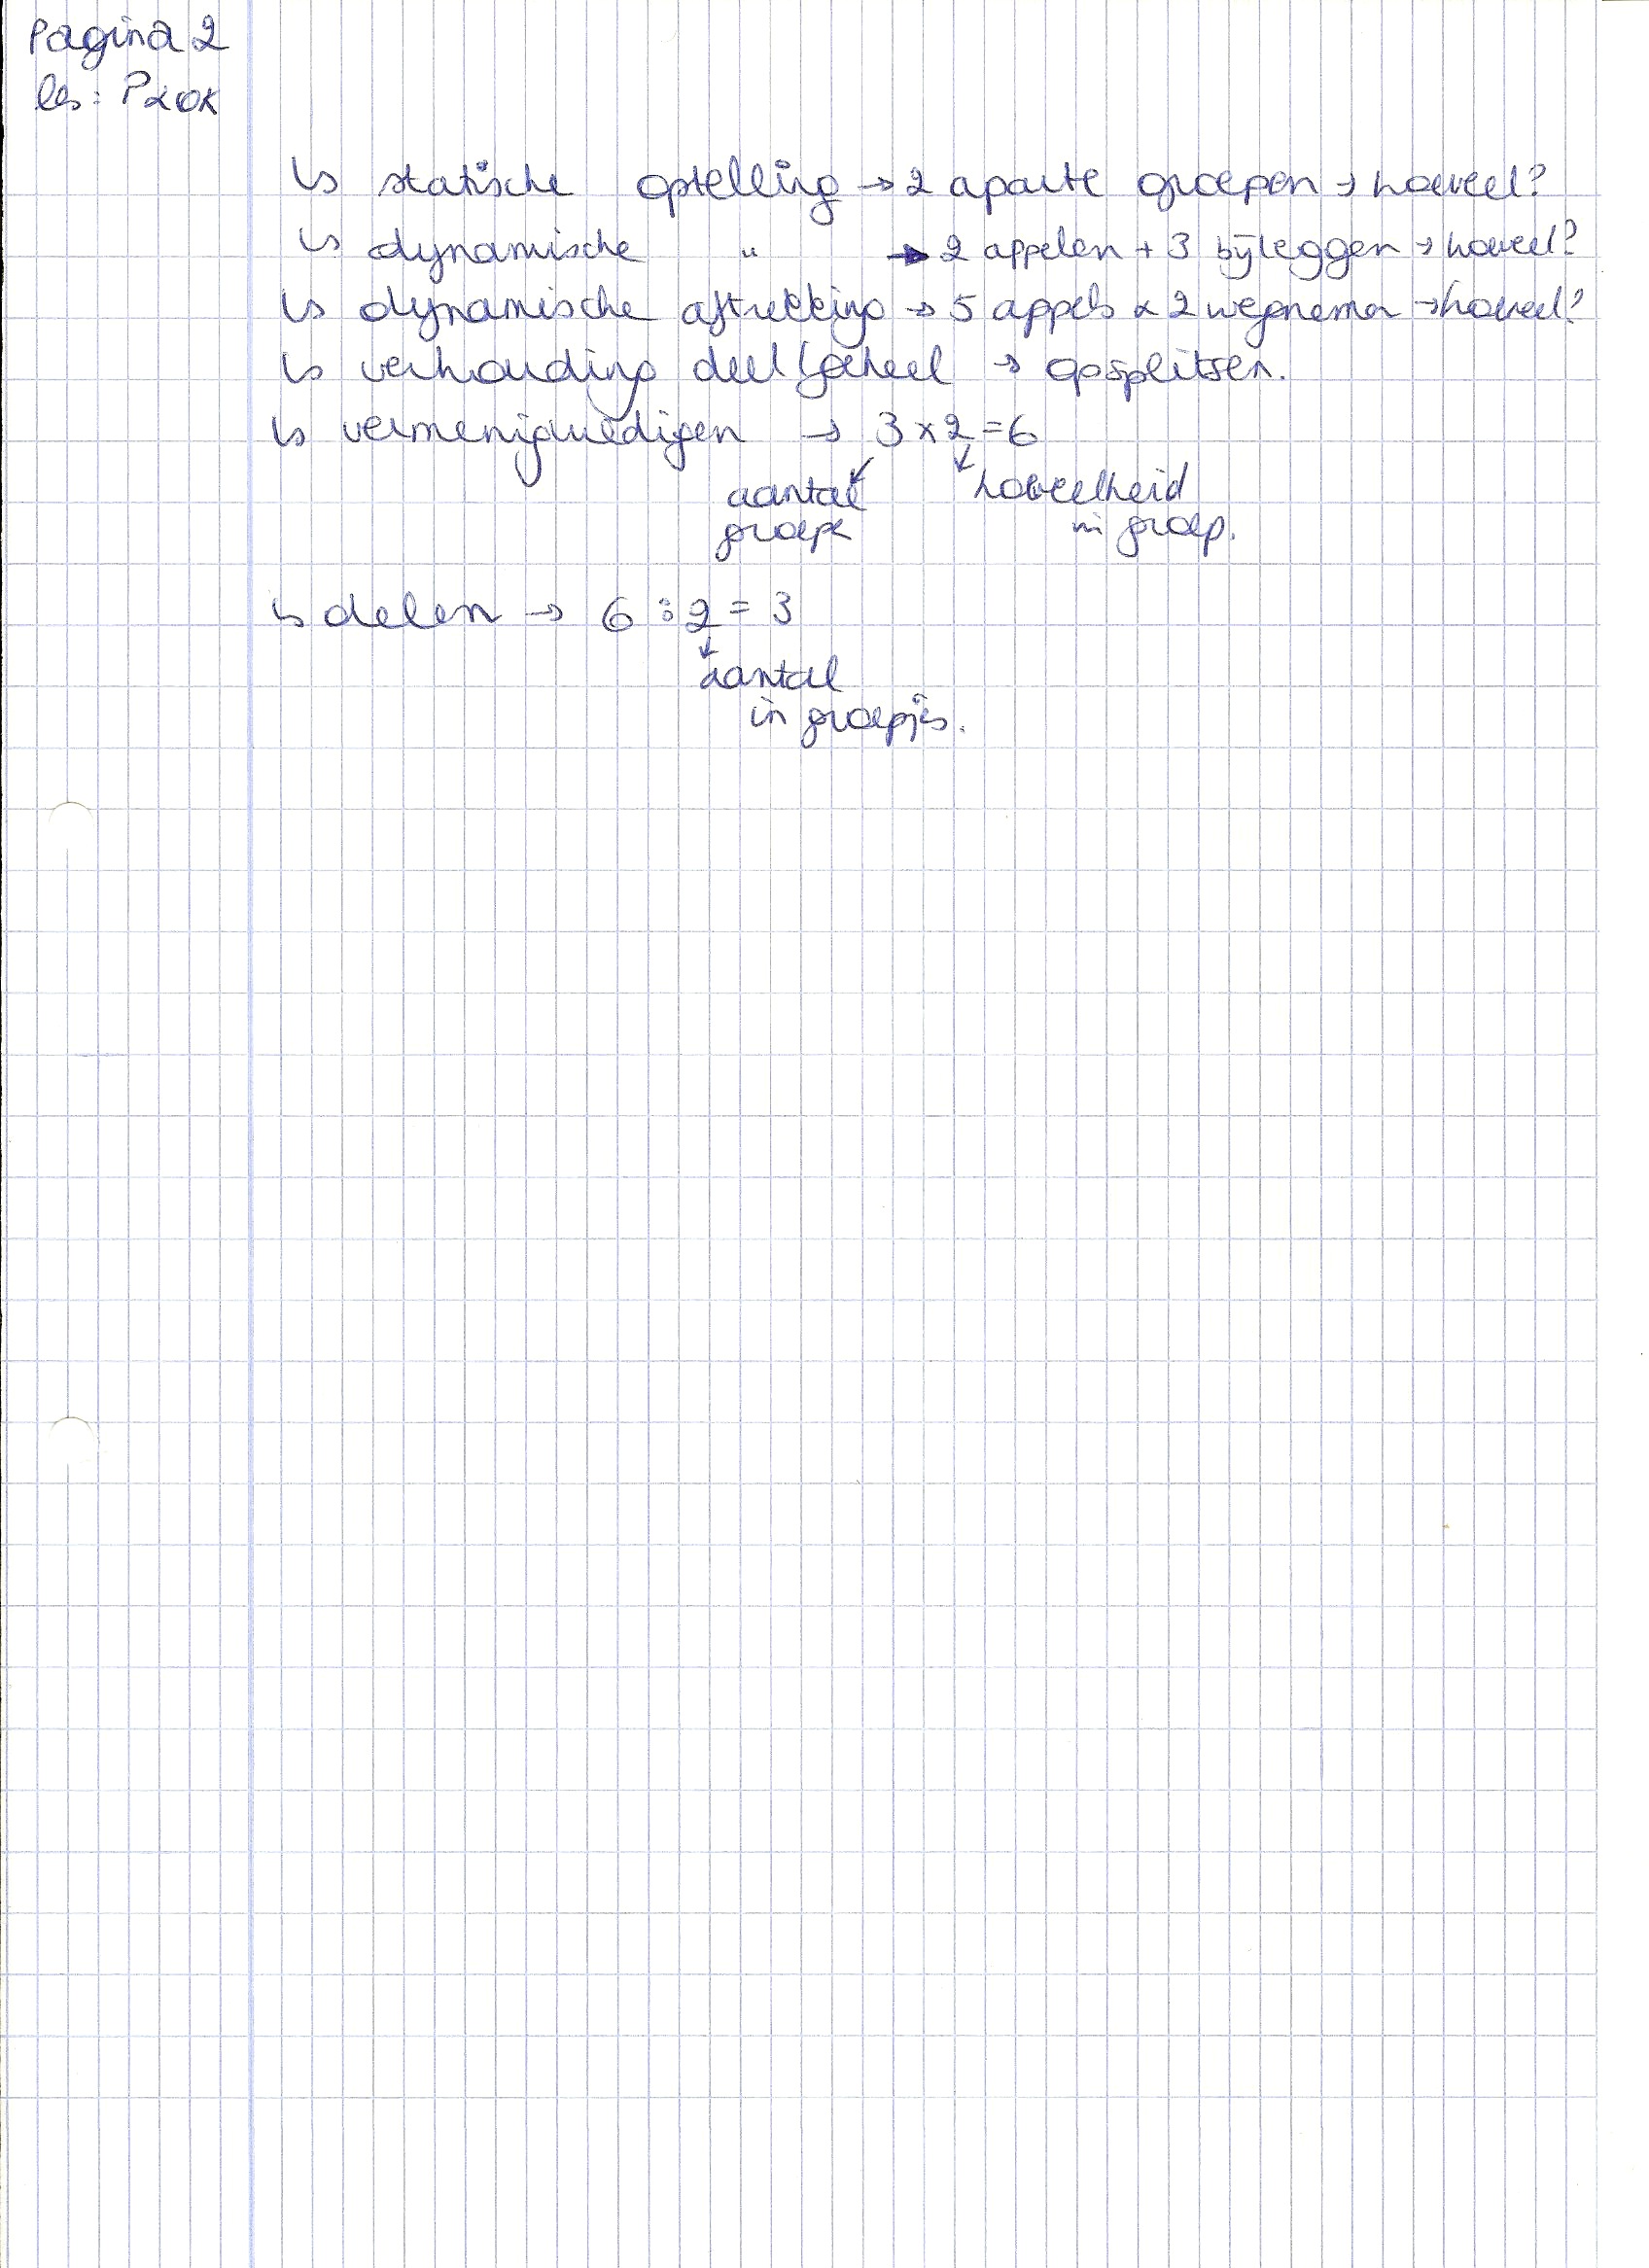 Pagina 2
les: P2OK
↳ statische optelling → 2 aparte groepen → hoeveel?
↳ dynamische " → 2 appelen + 3 bijleggen → hoeveel?
↳ dynamische aftrekking → 5 appels & 2 wegnemen → hoeveel?
↳ verhouding deel/geheel → opsplitsen.
↳ vermenigvuldigen → 3 x 2 = 6
aantal hoeveelheid
groepen in groep.
↳ delen → 6 : 2 = 3
aantal
in groepjes.